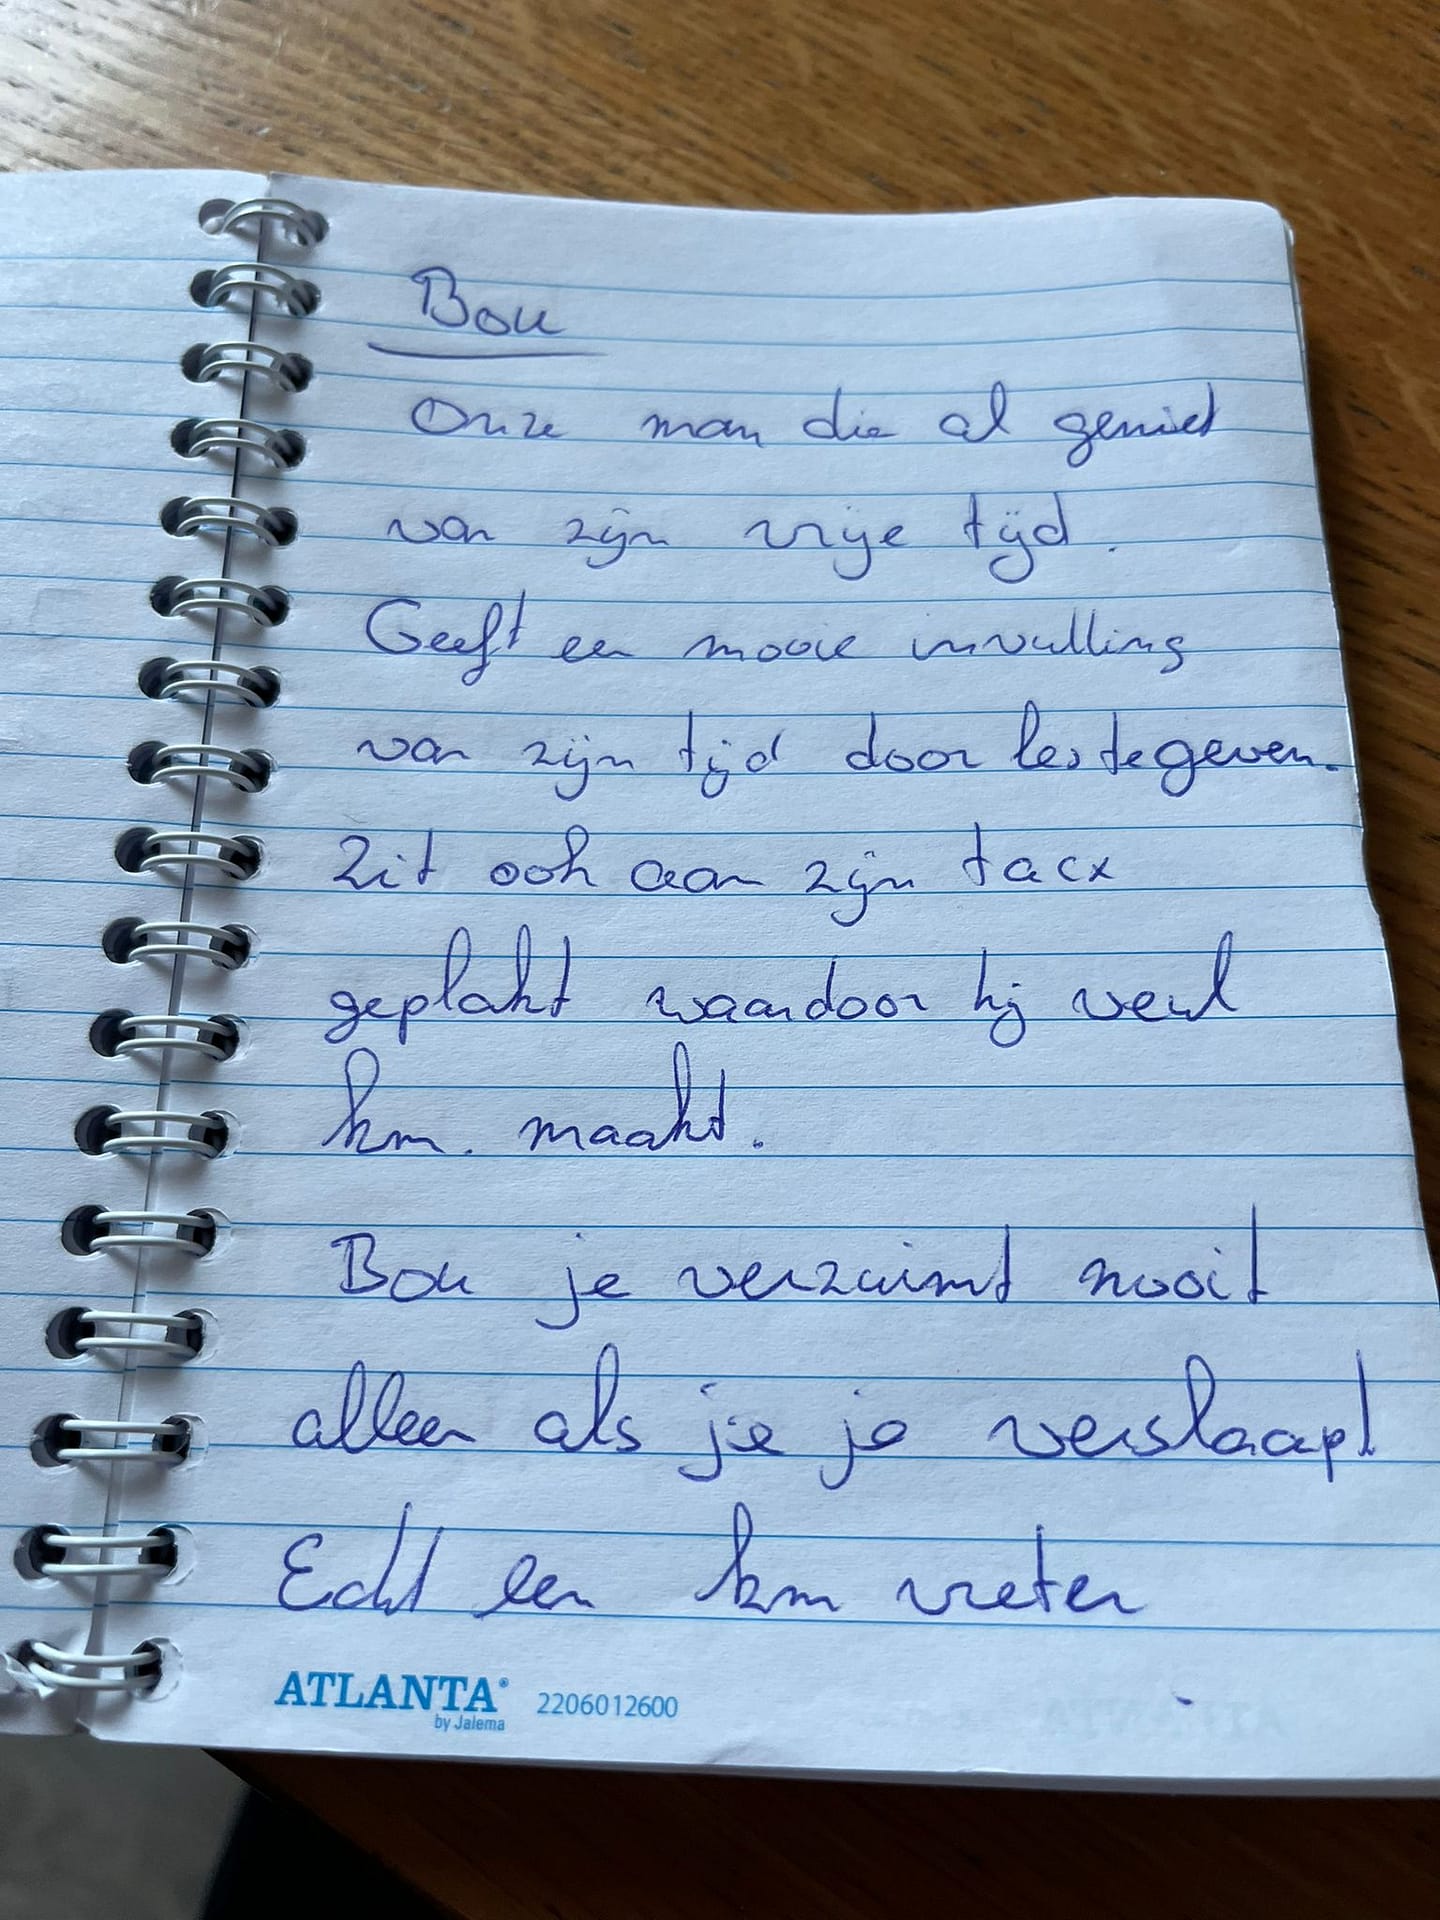 Bou
Onze man die al geniet
van zijn vrije tijd.
Geeft een mooie invulling
van zijn tijd door les te geven.
Zit ook aan zijn tacx
geplakt waardoor hij veel
km. maakt.
Bou je verzuimt nooit
alleen als je je verslaapt
Echt een km vreter
ATLANTA®
by Jalema
2206012600